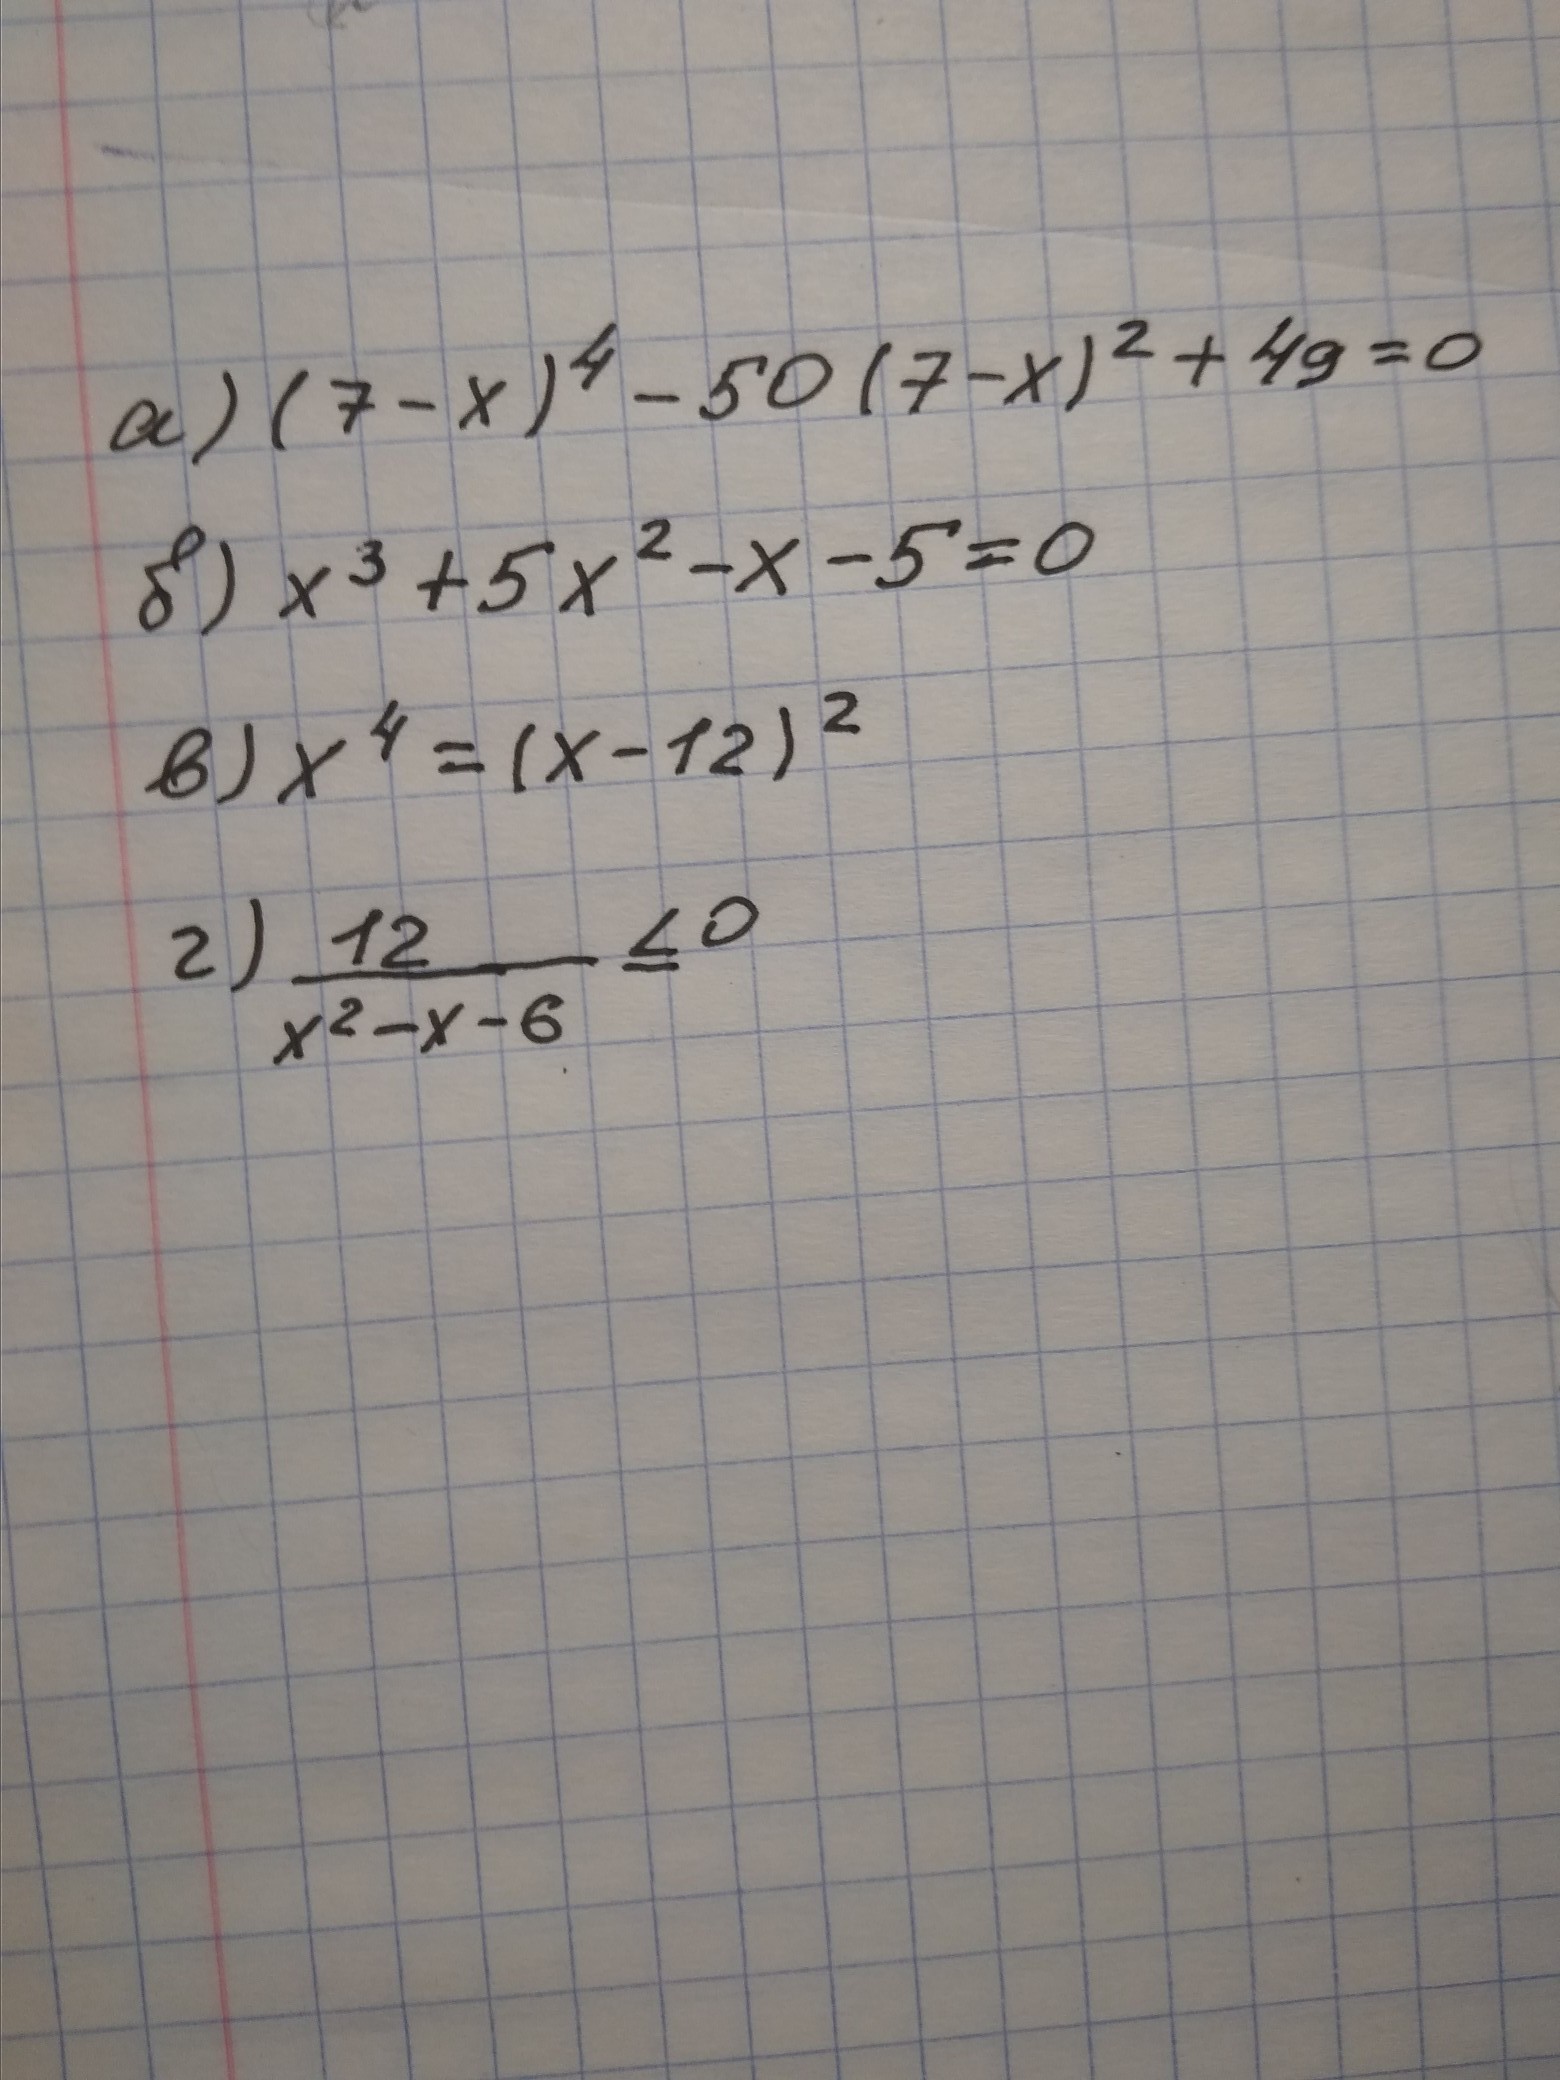 а) (7-x)⁴-50(7-x)²+49=0
б) x³+5x²-x-5=0
в) x⁴=(x-12)²
г) 12/(x²-x-6) ≤ 0